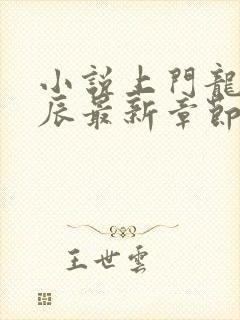 小説上門龍
辰最新章節
王世雲